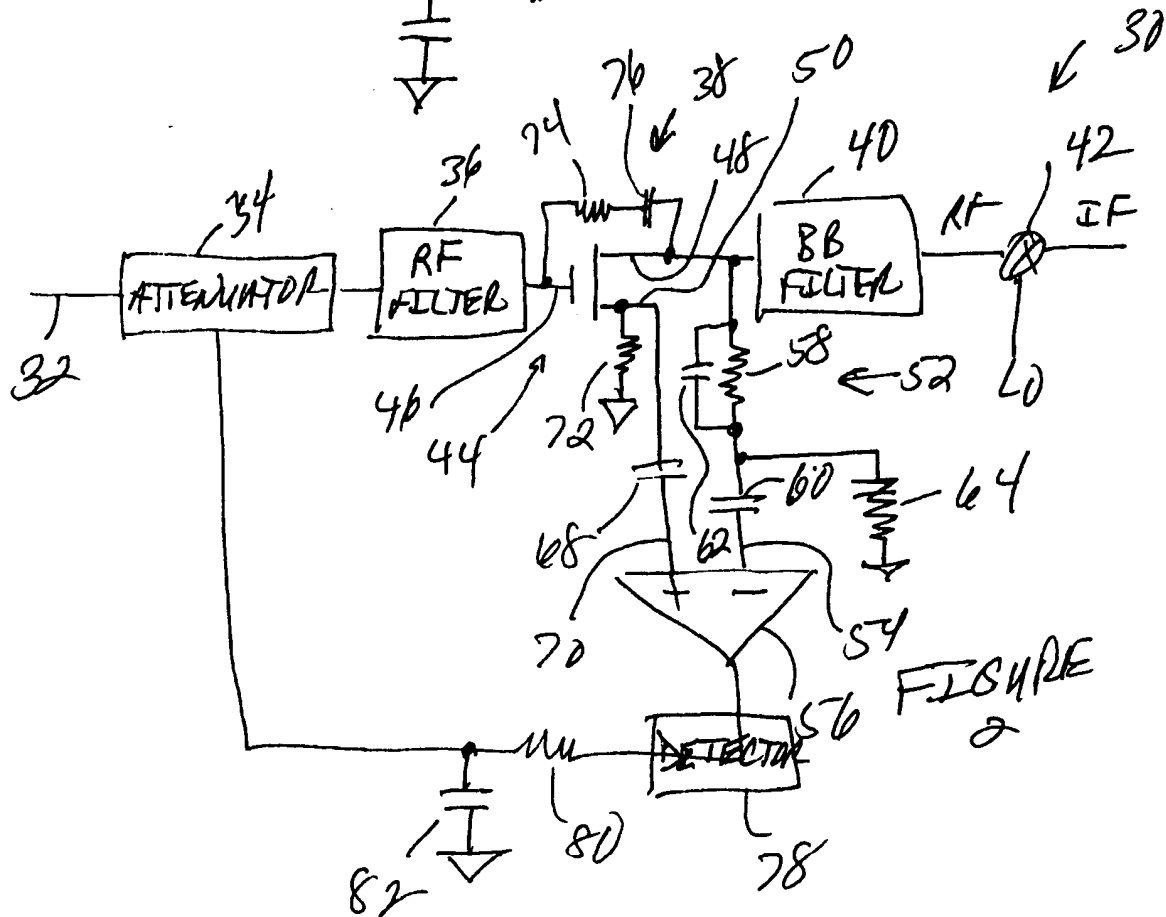 30
76 38 50
74 48 40 42
34 36 RF IF
ATTENUATOR
RF
FILTER
BB
FILTER
32 46 44 72 58 52 LO
68 62 60 64
+ −
70 54
56
FIGURE
2
DETECTOR
82 80 78